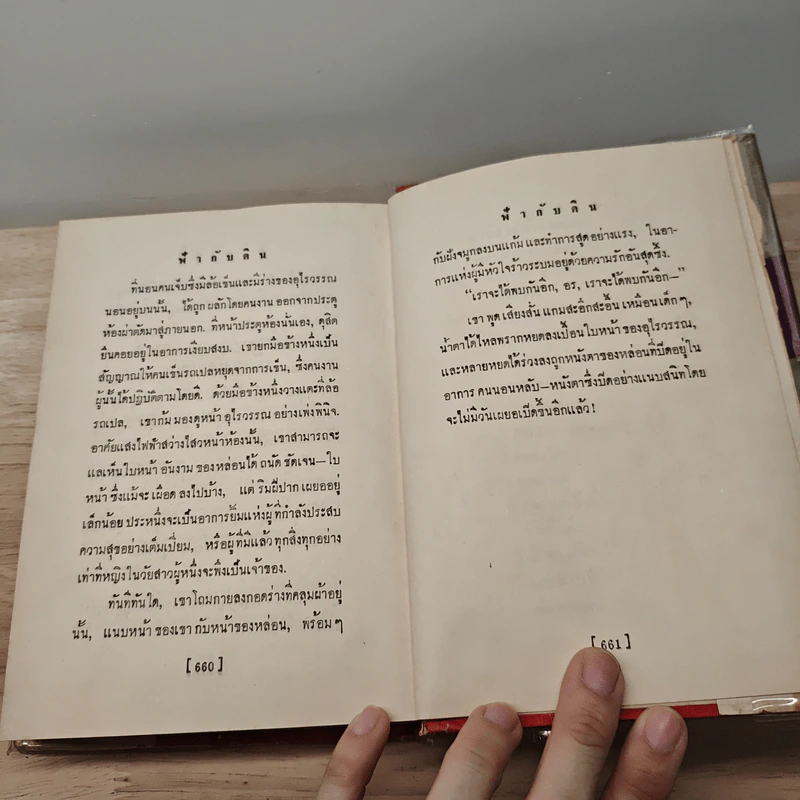 ฟ้ากับดิน
ที่นอนคนเจ็บซึ่งมีล้อเข็นและมีร่างของอุไรวรรณ
นอนอยู่บนนั้น, ได้ถูกผลักโดยคนงาน ออกจากประตู
ห้องผ่าตัดมาสู่ภายนอก. ที่หน้าประตูห้องนั้นเอง, ดุสิต
ยืนคอยอยู่ในอาการเงียบสงบ. เขายกมือข้างหนึ่งเป็น
สัญญาณให้คนเข็นรถเปลหยุดจากการเข็น, ซึ่งคนงาน
ผู้นั้นได้ปฏิบัติตามโดยดี. ด้วยมือข้างหนึ่งวางแตะที่ล้อ
รถเปล, เขาก้มมองดูหน้าอุไรวรรณ อย่างเพ่งพินิจ.
อาศัยแสงไฟฟ้าสว่างไสวหน้าห้องนั้น, เขาสามารถจะ
แลเห็นใบหน้า อันงาม ของหล่อนได้ ถนัด ชัดเจน—ใบ
หน้า ซึ่งแม้จะ เผือด ลงไปบ้าง, แต่ ริมฝีปาก เผยออยู่
เล็กน้อย ประหนึ่งจะเป็นอาการยิ้มแห่งผู้ ที่กำลังประสบ
ความสุขอย่างเต็มเปี่ยม, หรือผู้ที่มีแล้ว ทุกสิ่งทุกอย่าง
เท่าที่หญิงในวัยสาวผู้หนึ่งจะพึงเป็นเจ้าของ.
ทันทีทันใด, เขาโถมกายลงกอดร่างที่คลุมผ้าอยู่
นั้น, แนบหน้า ของเขา กับหน้าของหล่อน, พร้อมๆ
[660]
ฟ้ากับดิน
กับฝังจมูกลงบนแก้ม และทำการสูดอย่างแรง, ในอา-
การแห่งผู้มีหัวใจร้าวระบมอยู่ด้วยความรักอันสุดซึ้ง.
“เราจะได้พบกันอีก, อร, เราจะได้พบกันอีก—”
เขา พูด เสียงสั่น แกมสะอึกสะอื้น เหมือนเด็กๆ,
น้ำตาได้ไหลพรากหยดลงเปื้อนใบหน้า ของอุไรวรรณ,
และหลายหยดได้ร่วงลงถูกหนังตาของหล่อนที่ปิดอยู่ใน
อาการ คนนอนหลับ—หนังตาซึ่งปิดอย่างแนบสนิทโดย
จะไม่มีวันเผยอเปิดขึ้นอีกแล้ว!
[661]